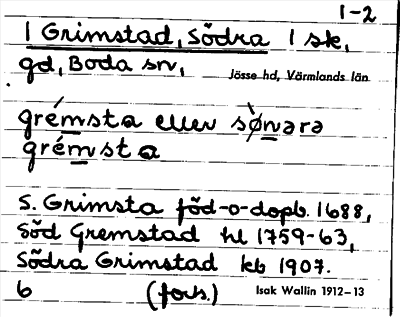 1-2
1 Grimstad, Södra 1 sk,
gd, Boda sn,
Jösse hd, Värmlands län
grémsta eller sø̀nərə
grémsta
S. Grimsta föd-o-dopb. 1688,
Söd Gremstad hl 1759-63,
Södra Grimstad kb 1907.
6 (forts.)
Isak Wallin 1912-13